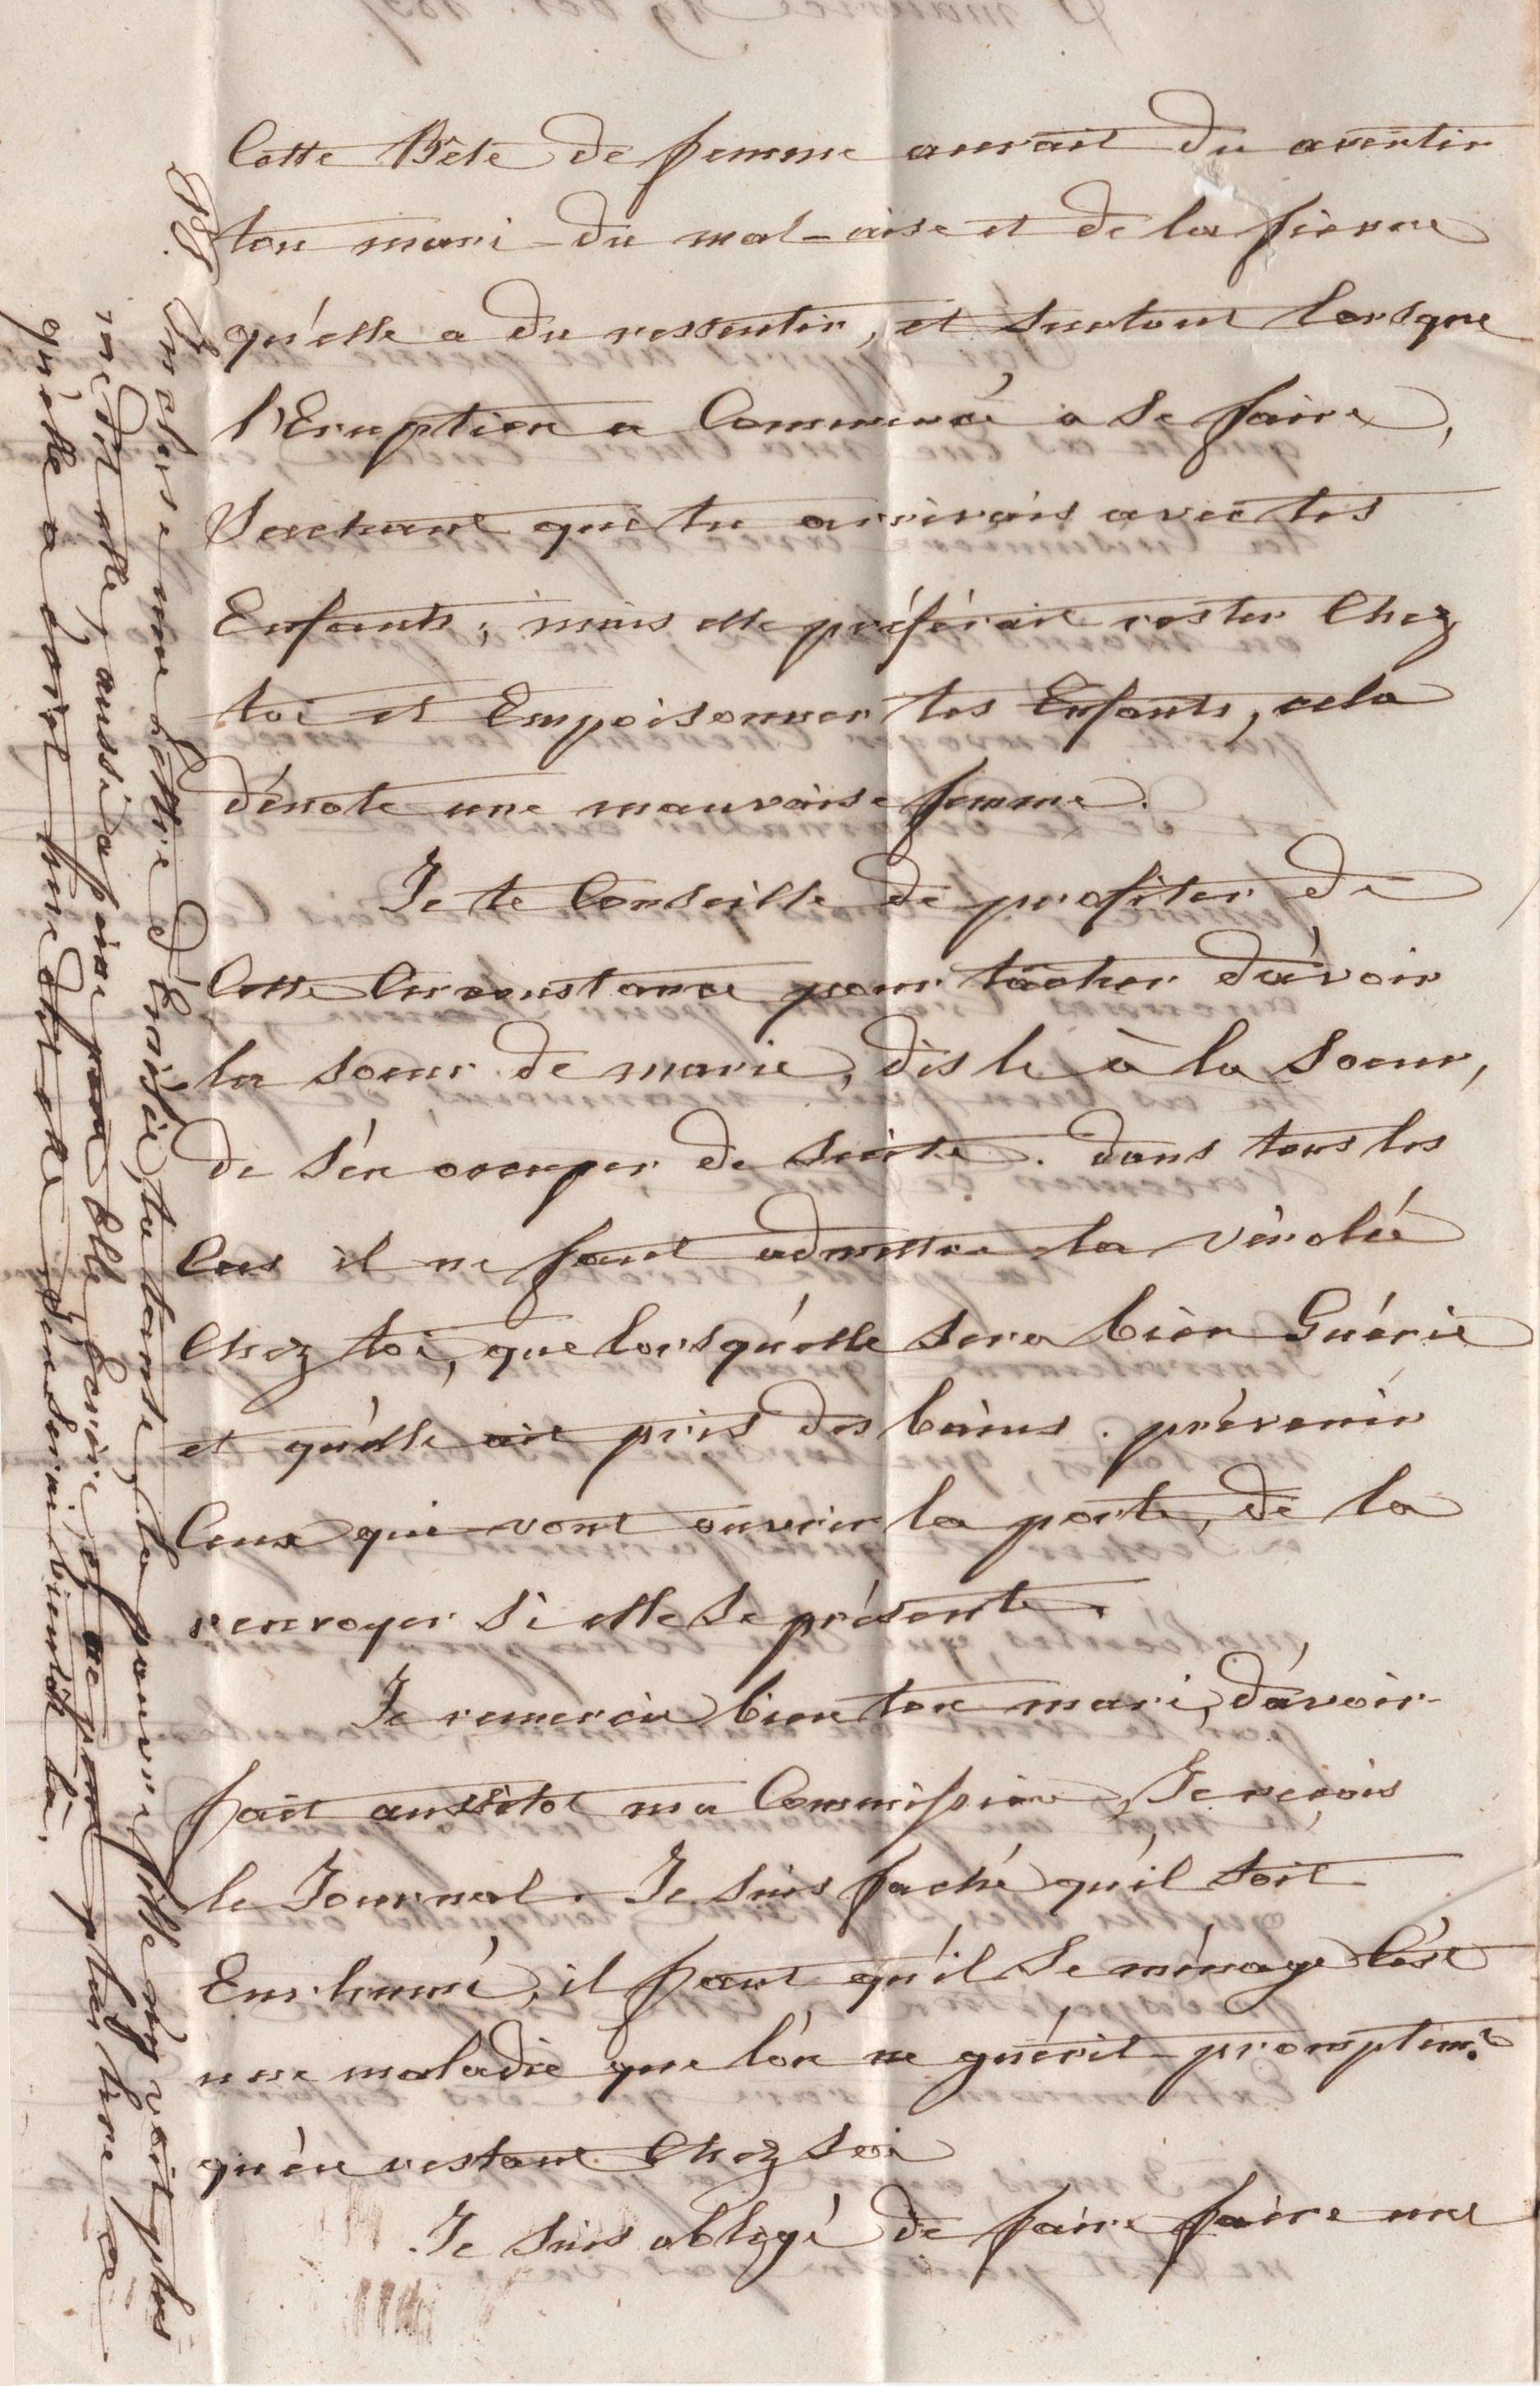 Cette Bête de femme aurait du avertir
ton mari du mal-aise et de la fievre
qu'elle a du ressentir, et surtout lorsque
l'Eruption a Commencé a se faire,
Sachant que tu arrivais avec tes
Enfants; mais elle préférait rester Chez
toi et Empoisonner tes Enfants, cela
dénote une mauvaise femme.
Je te Conseille de profiter de
Cette Circonstance pour tâcher d'avoir
la soeur de marie, dis le à la Soeur,
de s'en occuper de suite. dans tous les
Cas il ne faut admettre la vérolée
Chez toi, que lorsqu'elle sera bien Guérie
et qu'elle ait pris des bains. prévenir
Ceux qui vont ouvrir la porte, de la
renvoyer si elle se présente.
Je remercie bien ton mari, d'avoir
fait aussitot ma Commission, Je reçois
le Journal. Je suis faché qu'il soit
Enrhumé, il faut qu'il se ménage C'est
une maladie que l'on ne guérit promptemt
qu'en restant Chez soi
Je suis obligé de faire faire une
PS. Inclus une lettre d'Emélie, ta tante, la pauvre fille n'y voit plus
me dit elle, aussi a peine peut Elle Ecrire, et ne peut plus lire ce
qu'elle a écrit me dit elle, J'en serai bientôt là.